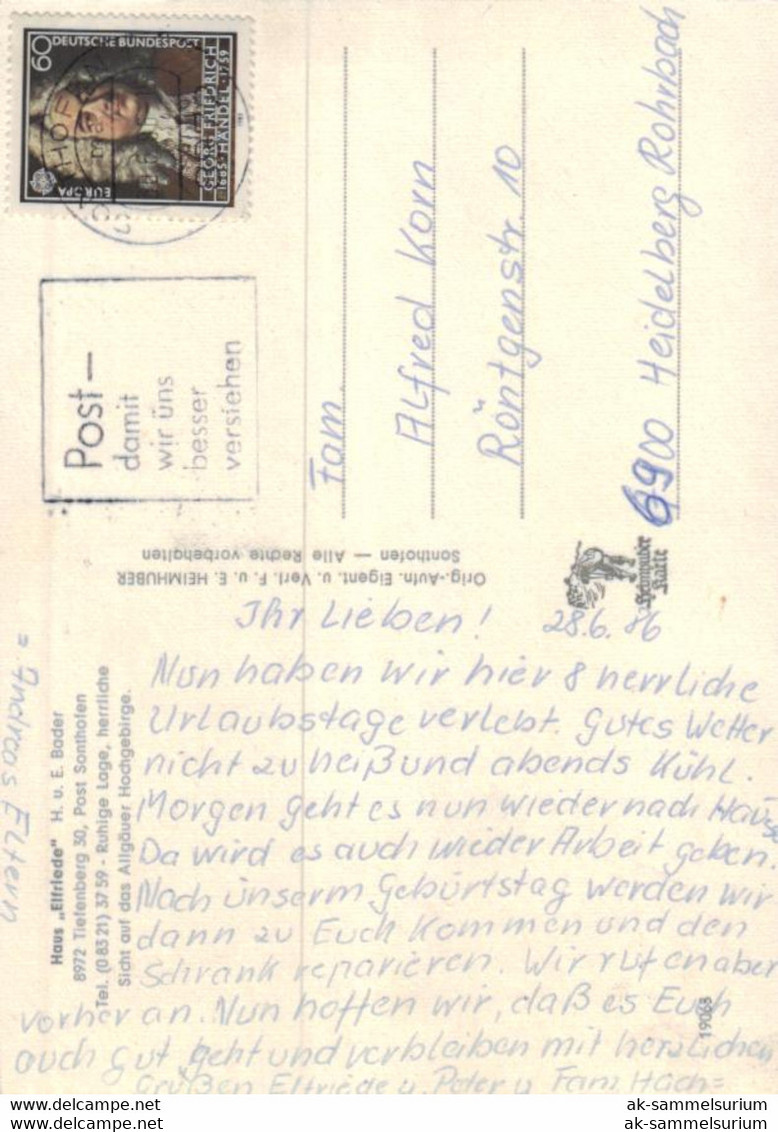 60 DEUTSCHE BUNDESPOST
GEORG FRIEDRICH
1685 · HÄNDEL · 1759
EUROPA
Post —
damit
wir uns
besser
verstehen
Fam.
Alfred Korn
Röntgenstr. 10
6900 Heidelberg Rohrbach
Orig.-Aufn. Eigent. u. Verl. F. u. E. HEIMHUBER
Sonthofen — Alle Rechte vorbehalten
Heimhuber
Karte
Haus „Elfriede" H. u. E. Bader
8972 Tiefenberg 30, Post Sonthofen
Tel. (0 83 21) 37 59 - Ruhige Lage, herrliche
Sicht auf das Allgäuer Hochgebirge.
Ihr Lieben! 28.6.86
Nun haben wir hier 8 herrliche
Urlaubstage verlebt. Gutes Wetter
nicht zu heiß und abends kühl.
Morgen geht es nun wieder nach Hause
Da wird es auch wieder Arbeit geben.
Nach unserm Geburtstag werden wir
dann zu Euch kommen und den
Schrank reparieren. Wir rufen aber
vorher an. Nun hoffen wir, daß es Euch
auch gut geht und verbleiben mit herzlichen
Grüßen Elfriede u. Peter u Fam. Hach=
u. Andreas Eltern
19068
ak-sammelsurium
ak-sammelsurium